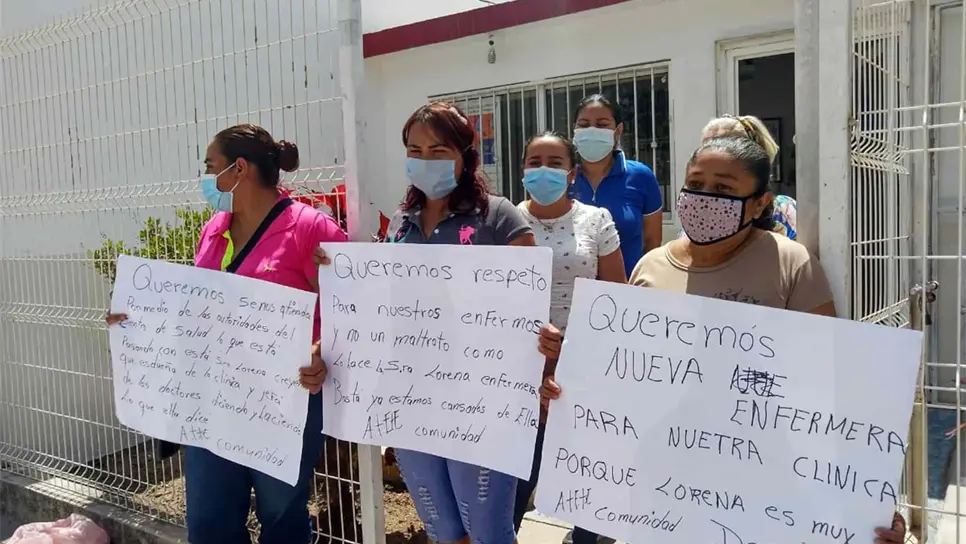 Queremos Serns atendid
Por medio de las autoridades del
Centn de Salud lo que está
Pasando con está sra Lorena creyen
que es dueña de la clinica y jefa
de los doctores diciendo y haciendo
Lo que ella dice
Atte comunidad
Queremos respeto
Para nuestros enfermos
y no un maltrato como
Lo hace la Sra Lorena enfermera
Basta ya estamos cansados de Ella
Atte comunidad
Queremós
NUEVA
ENFERMERA
PARA NUETRA CLINICA
PORQUE LORENA es muy
Atte comunidad